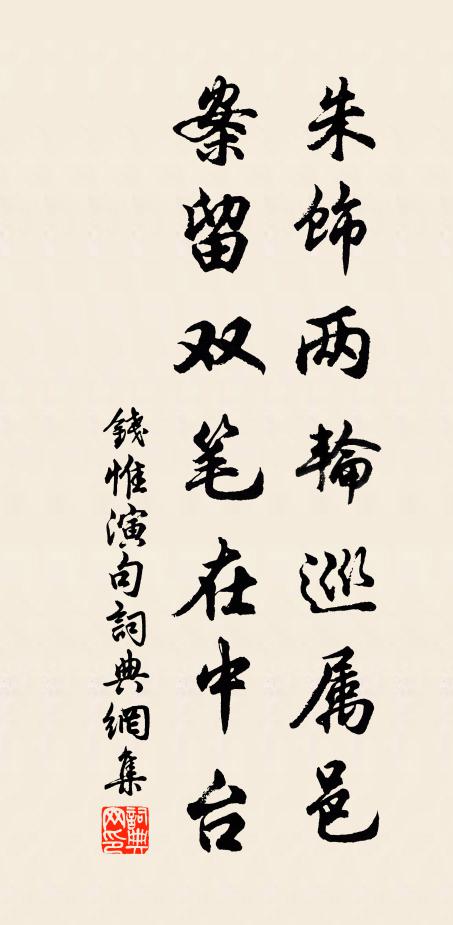 朱饰两輪巡属邑
案留双笔在中台
錢惟演句詞典網集
詞典網印